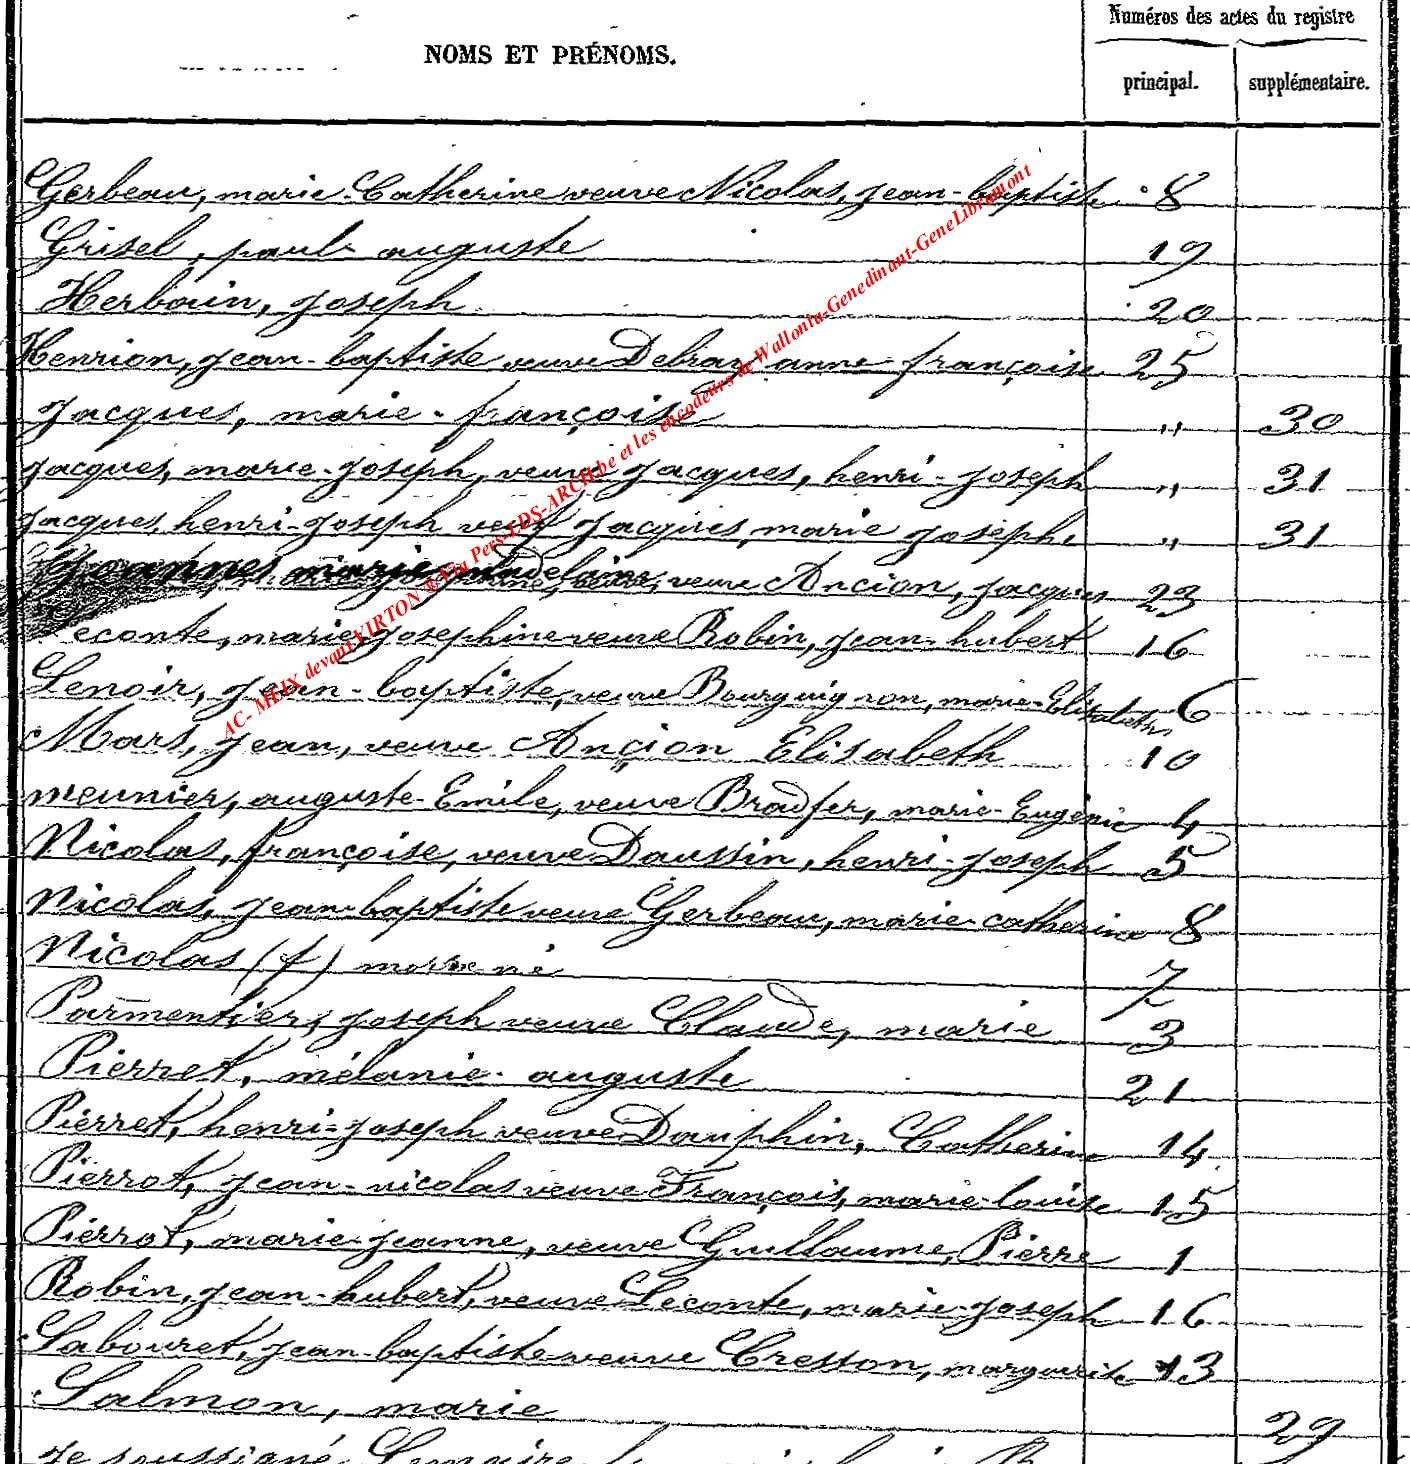 Numéros des actes du registre
NOMS ET PRÉNOMS.
principal. supplémentaire.
Gerbeau, marie-Catherine veuve Nicolas, jean-baptiste 8
Grisel, paul auguste 19
Herbain, Joseph 20
Henrion, jean-baptiste veuve anne-françoise 25
Jacques, marie-françoise " 30
Jacques, marie-joseph, veuve Jacques, henri-joseph " 31
Jacques, henri-joseph veuf Jacques, marie joseph " 31
marie veuve Ancion, jacques 23
econte, marie-josephine veuve Robin, jean-hubert 16
Lenoir, jean-baptiste, veuve Bourguignon, marie-Elisabeth 6
Mars, jean, veuve Ançion Elisabeth 10
meunier, auguste-Emile, veuve Bradfer, marie-Eugénie 4
Nicolas, françoise, veuve Daussin, henri-joseph 5
Nicolas, jean-baptiste veuve Gerbeau, marie-catherine 8
Nicolas (f) né 7
Parmentier, joseph veuve Claude, marie 3
Pierret, mélanie-auguste 21
Pierret, henri-joseph veuve Dauphin, Catherine 14
Pierrot, jean-nicolas veuve François, marie-louise 15
Pierrot, marie-jeanne, veuve Guillaume, Pierre 1
Robin, jean-hubert, veuve Leconte, marie-joseph 16
Sabouret, jean-baptiste veuve Cresson, marguerite 13
Salmon, marie 29
je soussigné Lemaire
AC- MEIX devant VIRTON ® Via Pers-LDS-ARCH.be et les encodeurs de Wallonia-Genedinant-GeneLibramont